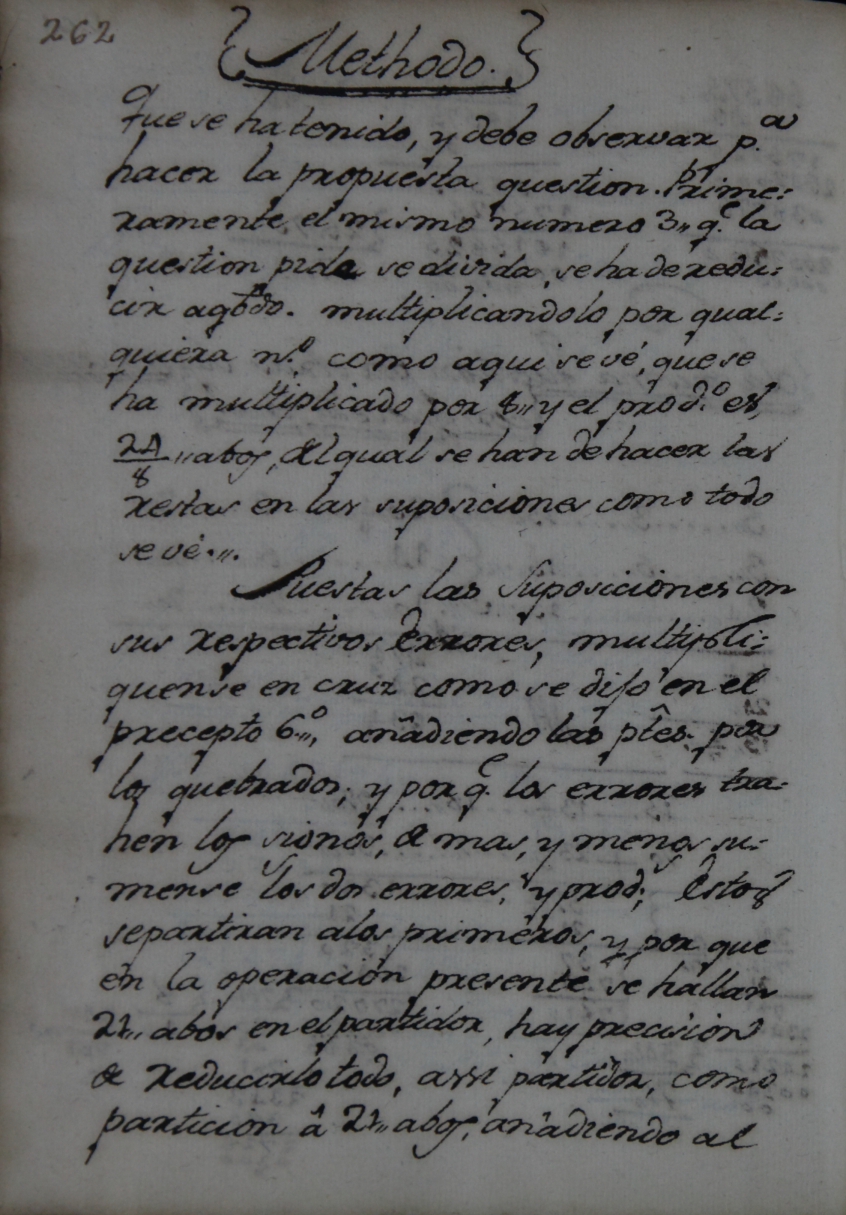 262
Methodo.
Que se ha tenido, y debe observar p.ª
hacer la propuesta question. Prime:
ramente, el mismo numero 3,, q.e la
question pide se divida, se ha de redu:
cir a qb̃do. multiplicandolo por qual:
quiera n.º como aqui se vé, que se
ha multiplicado por 8,, y el prod.º es,
24/8 ,, abos, del qual se han de hacer las
restas en las suposiciones como todo
se vé.,,.
Puestas las Suposiciones con
sus respectivos Errores, multipli:
quense en cruz como se dijo en el
precepto 6.º,, añadiendo las ptẽs. por
los quebrados; y por q.e los errores tra:
hen los signos, de mas, y menos, su:
mense los dos errores, y prod.s; Estos
se partiran a los primeros, y por que
en la operacion presente se hallan
21,, abos en el partidor, hay precision
de reducirlo todo, assi partidor, como
particion â 21,, abos, añadiendo al